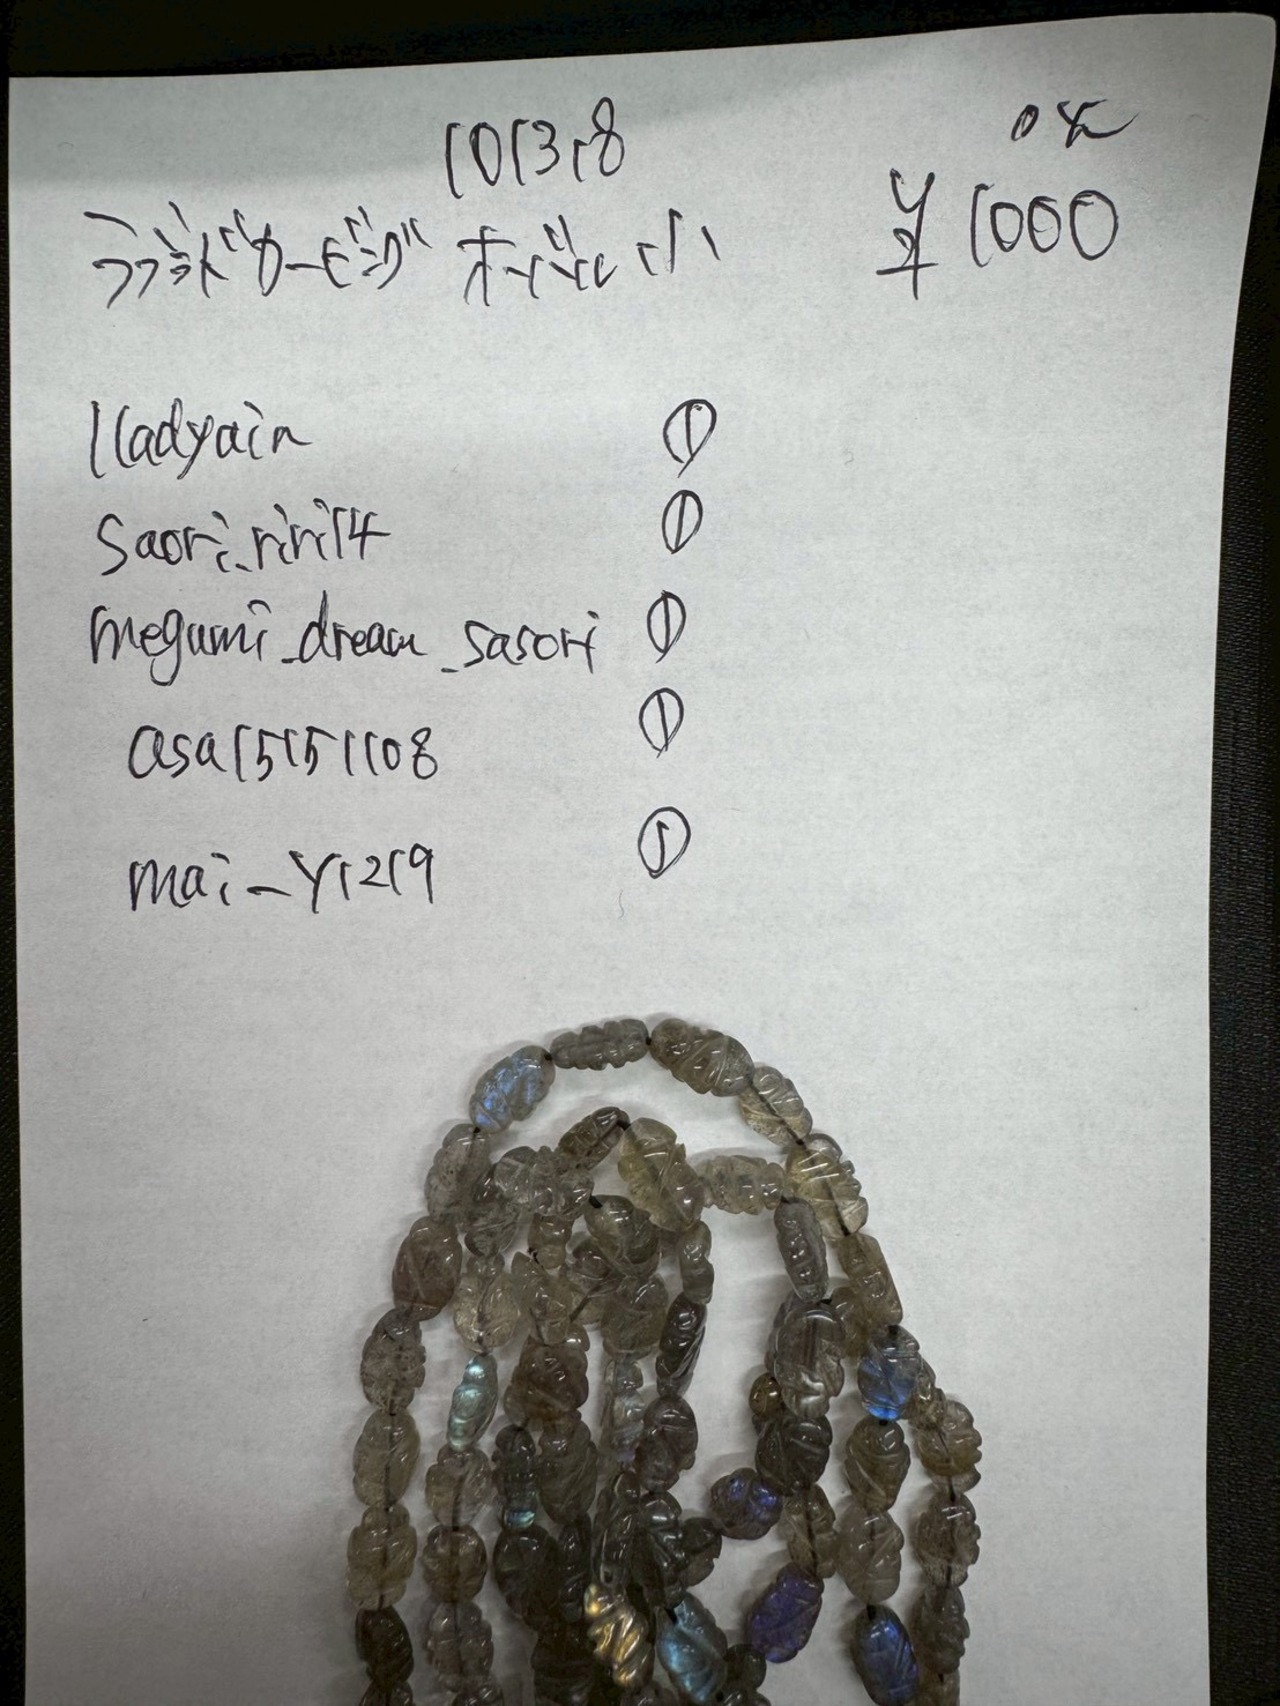 101318
OK
ラブラド カービング オーバル 小
¥1000
lladyain ①
saori_riri14 ①
megumi_dream_sasori ①
asa15151108 ①
mai_y1219 ①